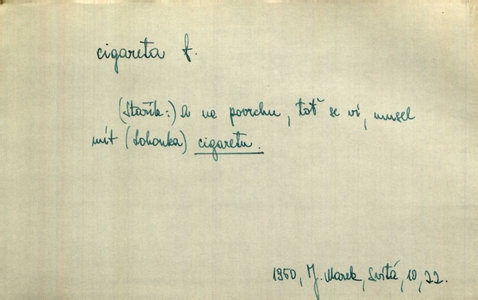 cigareta f.
(Stařík:) A na povrchu, toť se ví, musel
mít (Lohonka) cigaretu.
1950, J. Marek, Svítá, 10, 22.